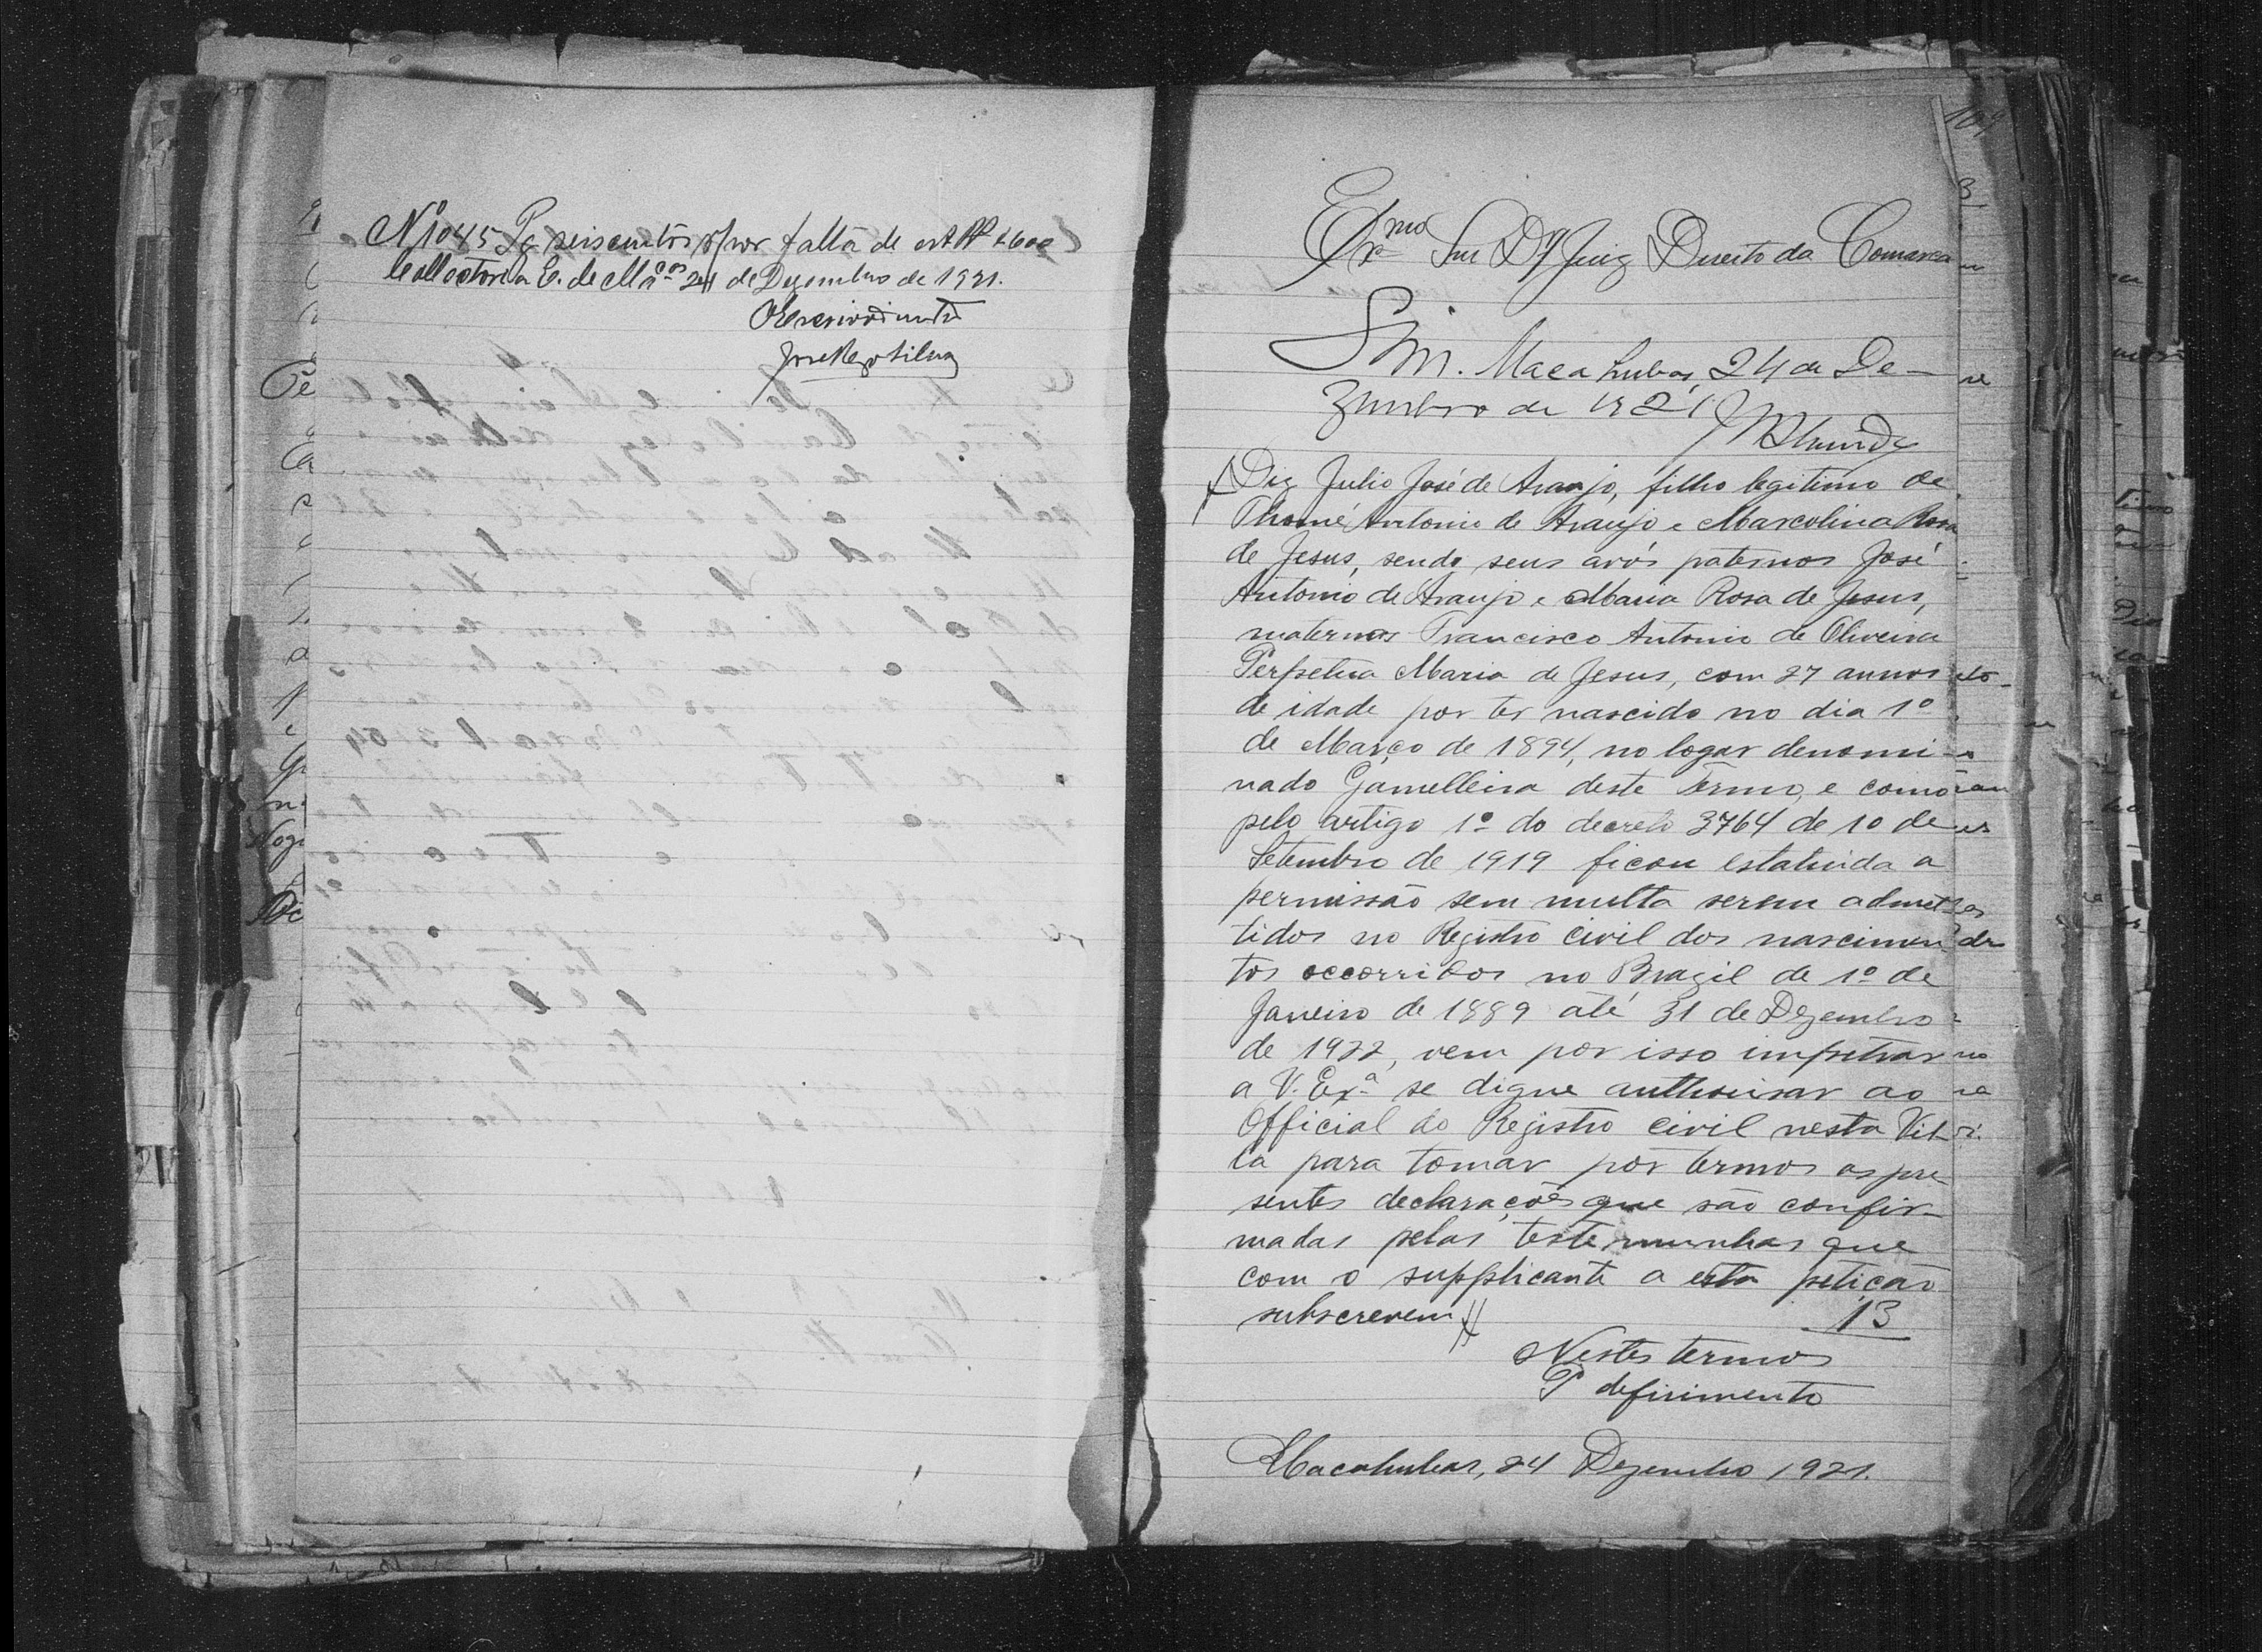 Nº 1045 Pg seiscentos rs por falta de est. $600
Collectoria E. de Macas 24 de Dezembro de 1921.
O Escrivão
José Rego Silva
109
Exmo Snr Dr Juiz Direito da Comarca
Sim. Macahubas, 24 de De-
zembro de 1921
Diz Julio José de Araujo, filho legitimo de
Thomé Antonio de Araujo e Marcolina Rosa
de Jesus, sendo seus avós paternos José
Antonio de Araujo e Maria Rosa de Jesus,
maternos Francisco Antonio de Oliveira
Perpetua Maria de Jesus, com 27 annos
de idade por ter nascido no dia 1º
de Março de 1894, no logar denomi-
nado Gamelleira deste Termo, e como
pelo artigo 1º do decreto 3764 de 10 de
Setembro de 1919 ficou estatuida a
permissão sem multa serem admet-
tidos no Registro civil dos nascimen-
tos occorridos no Brazil de 1º de
Janeiro de 1889 até 31 de Dezembro
de 1922, vem por isso impetrar
a V. Exª se digne authorisar ao
Official do Registro civil nesta Vil-
la para tomar por termos as pre-
sentes declarações que são confir-
madas pelas testemunhas que
com o supplicante a esta petição
subscrevem
13
Nestes termos
P deferimento
Macahubas, 24 Dezembro 1921.